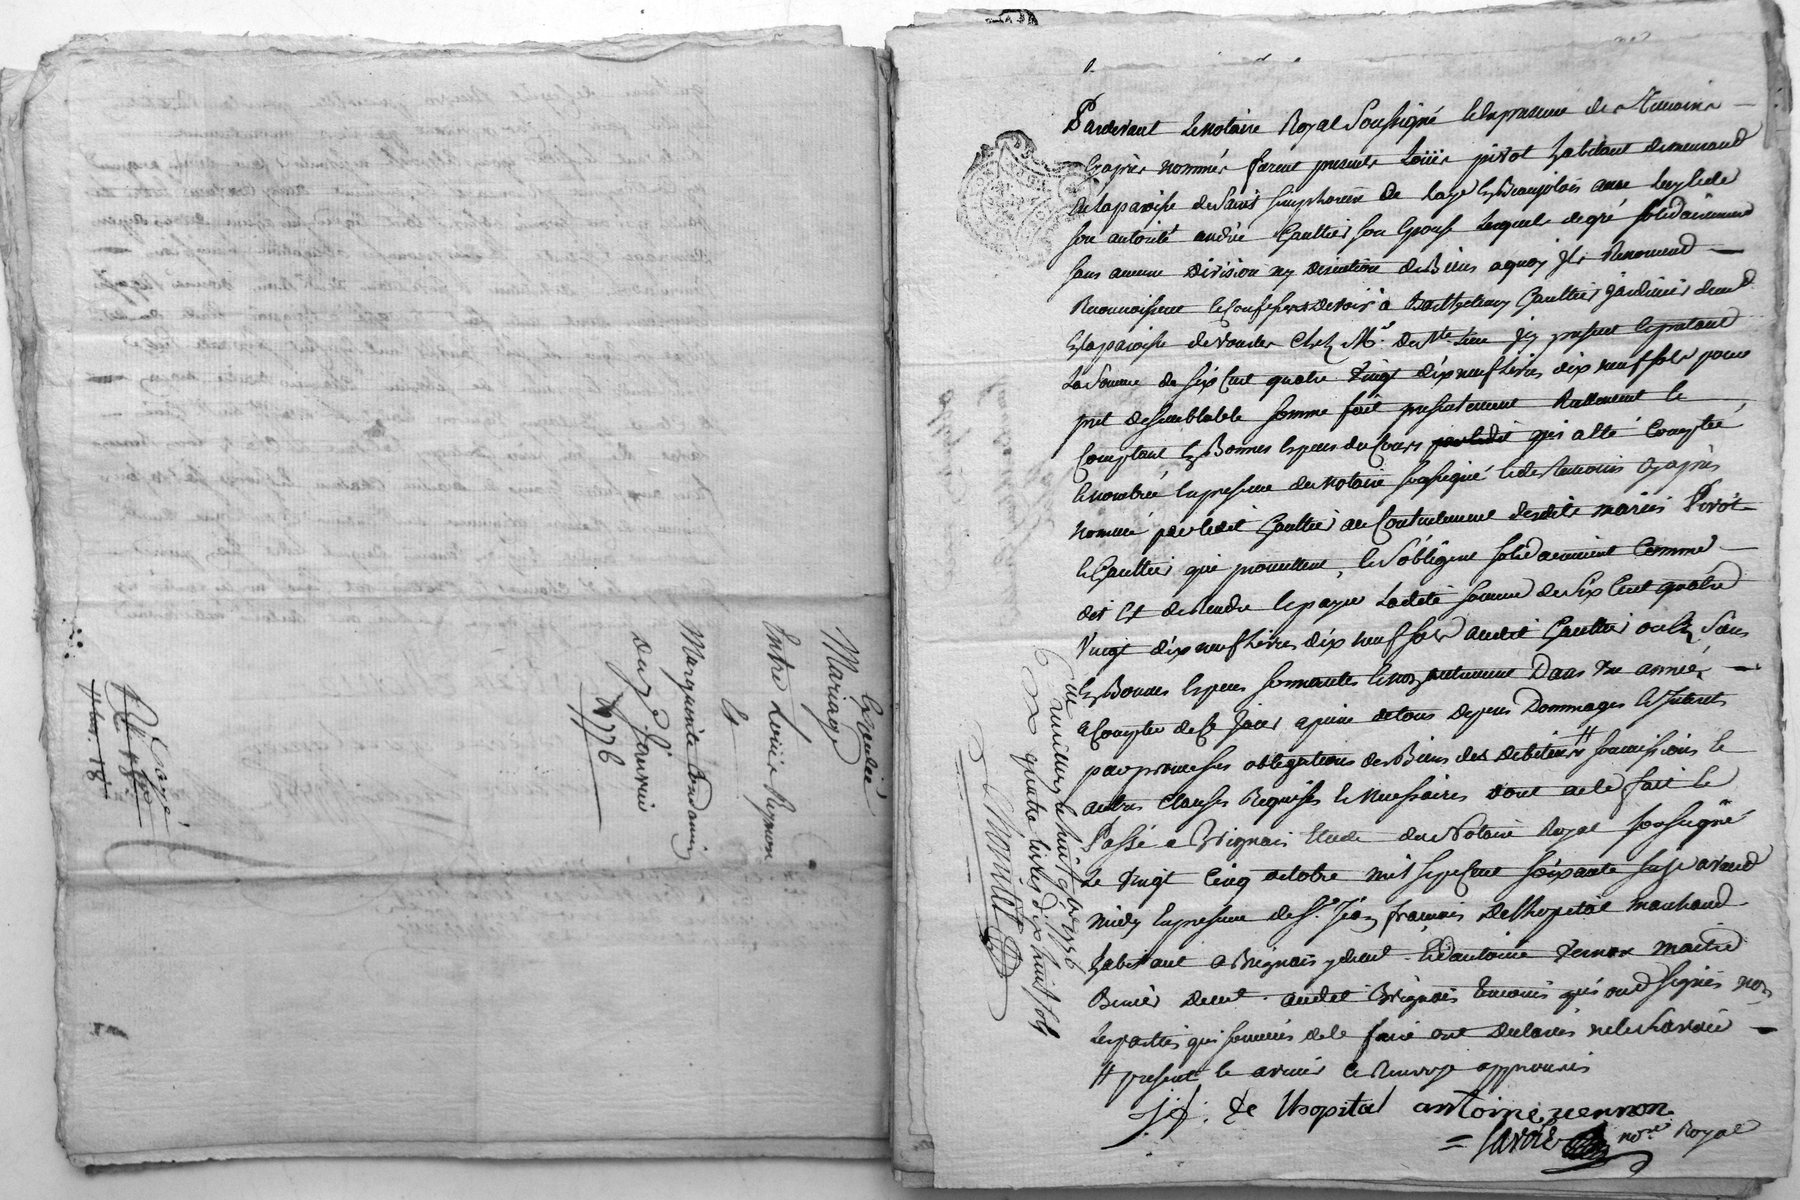 Expedié
Mariage
Entre Louis Reynon
Et
Marguerite
du 3 Janvier
1776
Payé
Pardevant Le notaire Royal Soussigné En presence des Temoins
Cy après nommés furent presents Louis pivot habitant demeurant
En la paroisse de Saint simphorien De Laye En Beaujolois avec Luy et de
son autorité andrée Gaultier son Epouse Lesquels de gré solidairement
sans aucune Division ny Discution de Biens a quoy ils Renoncent
Reconnoissent et Confessent devoir à Barthelemy Gaultier Jardinier demt
En la paroisse de vourles Chez Mr. icy present Acceptant
La Somme de six Cent quatre Vingt dix neuf Livres dix neuf sols pour
pret de semblable somme fait presentement Reellement et
Comptant En Bonnes Especes du Cours qui a Eté Comptée
et nombrée En presence du notaire soussigné et des Temoins Cy après
nommés par ledit Gaultier au Contentement desdits mariés Pivot
et Gaultier qui promettent, et s'obligent solidairement Comme
dit Est de Rendre et payer Ladite somme de Six Cent quatre
Vingt dix neuf Livres dix neuf sols audit Gaultier ou aux Siens
En Bonnes Especes sonnantes et non autrement Dans Une année,
a Compter de Ce Jour a peine de tous depens Dommages et Interets
par promesses obligations de Biens des debiteurs # soumissions et
autres Clauses Requises et Necessaires dont acte fait et
Passé a Brignais Etude du Notaire Royal soussigné
Le Vingt Cinq octobre mil sept Cent soixante seize avant
midy En presence de sr. Jean françois De Lhopital marchand
habitant a Brignais y demt. et d'antoine Vernon maitre
demt. audit Brignais Temoins qui ont signés non
Les parties qui sommées de le faire ont declarés ne le sçavoir
# present et avenir Ce Renvoye approuvés
j. f. De Lhopital antoine vernon
= Savoie nore. Royal
Cle. a millery le huit 9bre 1776
Rx quatre livres dix huit sols